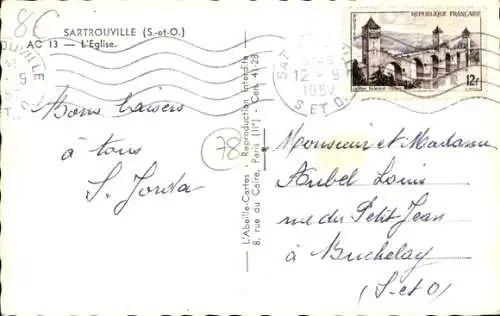 8C
SARTROUVILLE (S.-et-O.)
AC 13 — L'Eglise.
Bons baisers
à tous
S. Jorda
78
L'Abeille-Cartes - Reproduction interdite
8, rue du Caire, Paris (IIe) - Cen. 41-28
REPUBLIQUE FRANÇAISE
12f
12 - 9
1957
S ET O
Monsieur et Madame
Aubel Louis
rue du Petit Jean
à Buchelay
(S-et-O)